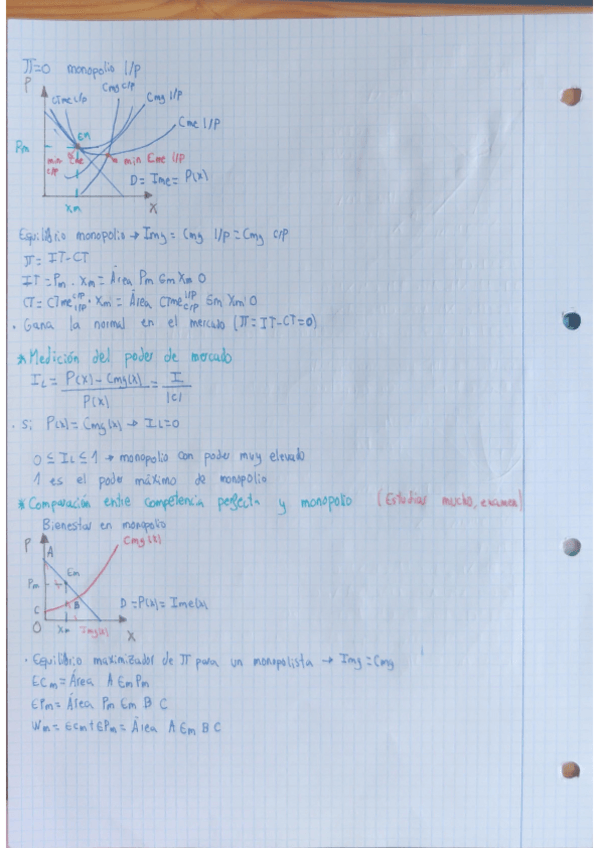 π=0 monopolio l/p
P
CTme c/p
Cmg c/p
Cmg l/p
Cme l/p
Em
Pm
min Cme c/p
min Cme l/p
D = Ime = P(x)
xm
X
Equilibrio monopolio → Img = Cmg l/p = Cmg c/p
π = IT-CT
IT = Pm · Xm = Área Pm Em Xm 0
CT = CTme c/p l/p · Xm = Área CTme l/p c/p Em Xm 0
· Gana la normal en el mercado (π = IT-CT=0)
* Medición del poder de mercado
IL = P(x) - Cmg(x) / P(x) = I / |ε|
· Si P(x) = Cmg(x) → IL=0
0 ≤ IL ≤ 1 → monopolio con poder muy elevado
1 es el poder máximo de monopolio
* Comparación entre competencia perfecta y monopolio (Estudiar mucho, examen)
Bienestar en monopolio
P
A
Cmg(x)
Em
Pm
B
C
D = P(x) = Ime(x)
O
Xm
Img(x)
X
· Equilibrio maximizador de π para un monopolista → Img = Cmg
ECm = Área A Em Pm
EPm = Área Pm Em B C
Wm = ECm + EPm = Área A Em B C